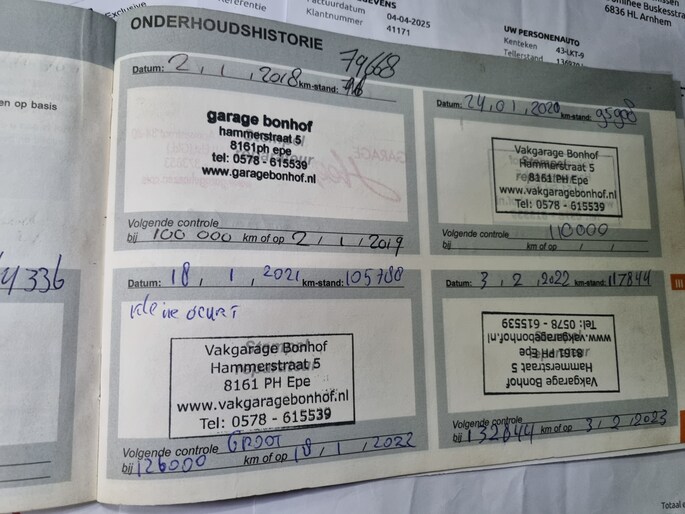 Exclusive
Referentie
GEVENS
Factuurdatum 04-04-2025
Klantnummer 41171
Buskesstra
6836 HL Arnhem
UW PERSONENAUTO
Kenteken 43-LKT-9
Tellerstand
en op basis
4336
ONDERHOUDSHISTORIE
79668
Datum: 2 , 1 , 2018 km-stand:
garage bonhof
hammerstraat 5
8161ph epe
tel: 0578 - 615539
www.garagebonhof.nl
Volgende controle
bij 100 000 km of op 2 , 1 , 2019
Datum: 24,01,2020 km-stand: 95908
Vakgarage Bonhof
Hammerstraat 5
8161 PH Epe
www.vakgaragebonhof.nl
Tel: 0578 - 615539
Volgende controle
bij 110000 km of op / /
Datum: 18 , 1 , 2021 km-stand: 105788
Kleine beurt
Vakgarage Bonhof
Hammerstraat 5
8161 PH Epe
www.vakgaragebonhof.nl
Tel: 0578 - 615539
Volgende controle GROOT
bij 126000 km of op 18 , 1 , 2022
Datum: 3 , 2 , 2022 km-stand: 117844
Vakgarage Bonhof
Hammerstraat 5
8161 PH Epe
www.vakgaragebonhof.nl
Tel: 0578 - 615539
Volgende controle
bij 132844 km of op 3 , 2 , 2023
Totaal e